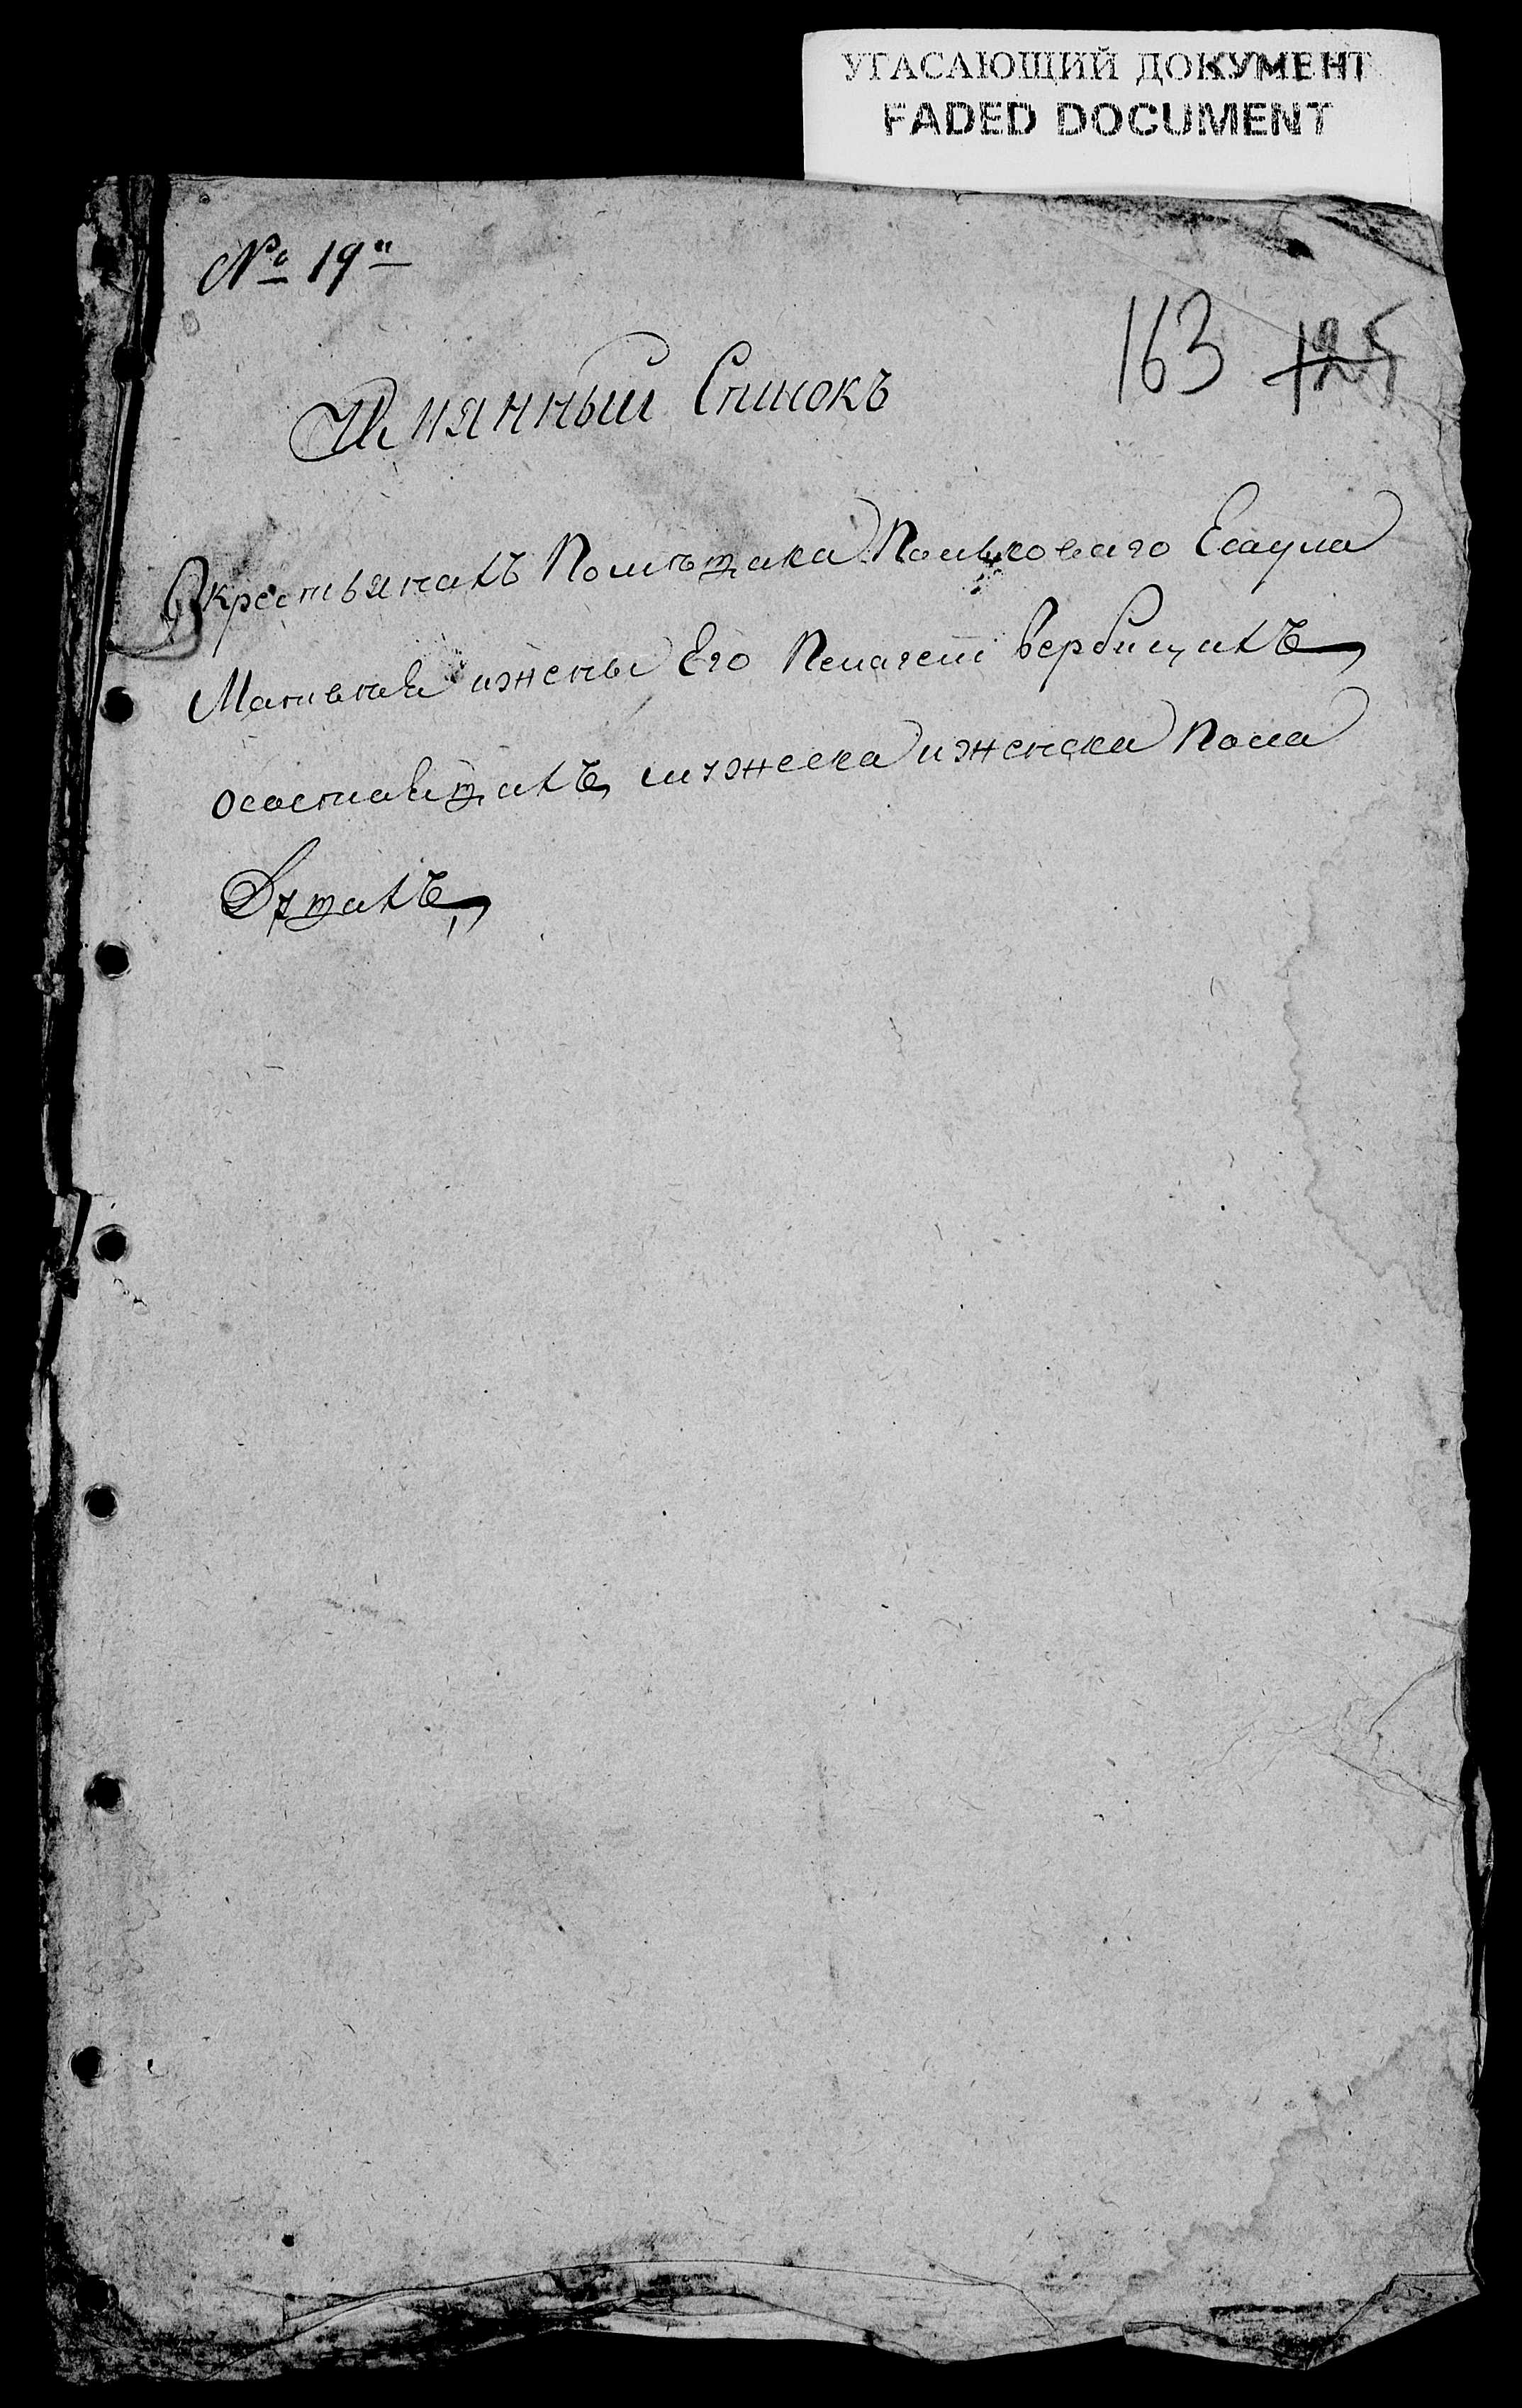 УГАСАЮЩИЙ ДОКУМЕНТ
FADED DOCUMENT
№ 19й
163 125
Имянный Списокъ
Окрестьянахъ Помѣщика Полковаго Есаула
Матвея ижены Его Пелагеи Вербицихъ
осостоящихъ мужеска иженска Пола
Душахъ